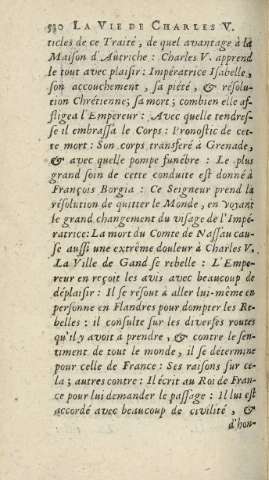 530 LA VIE DE CHARLES V.
ticles de ce Traité, de quel avantage à la
Maison d'Autriche : Charles V. apprend
le tout avec plaisir : Impératrice Isabelle,
son accouchement, sa piété, & résolu-
tion Chrétienne; sa mort; combien elle af-
fligea l'Empereur : Avec quelle tendres-
se il embrassa le Corps : Pronostic de cet-
te mort : Son corps transferé à Grenade,
& avec quelle pompe funébre : Le plus
grand soin de cette conduite est donné à
François Borgia : Ce Seigneur prend la
résolution de quitter le Monde, en voyant
le grand changement du visage de l'Impé-
ratrice: La mort du Comte de Nassau cau-
se aussi une extrême douleur à Charles V.
La Ville de Gand se rebelle : L'Empe-
reur en reçoit les avis avec beaucoup de
déplaisir : Il se résout à aller lui-même en
personne en Flandres pour dompter les Re-
belles : il consulte sur les diverses routes
qu'il y avoit à prendre, & contre le sen-
timent de tout le monde, il se détermine
pour celle de France : Ses raisons sur ce-
la; autres contre : Il écrit au Roi de Fran-
ce pour lui demander le passage : Il lui est
accordé avec beaucoup de civilité, &
d'hon-